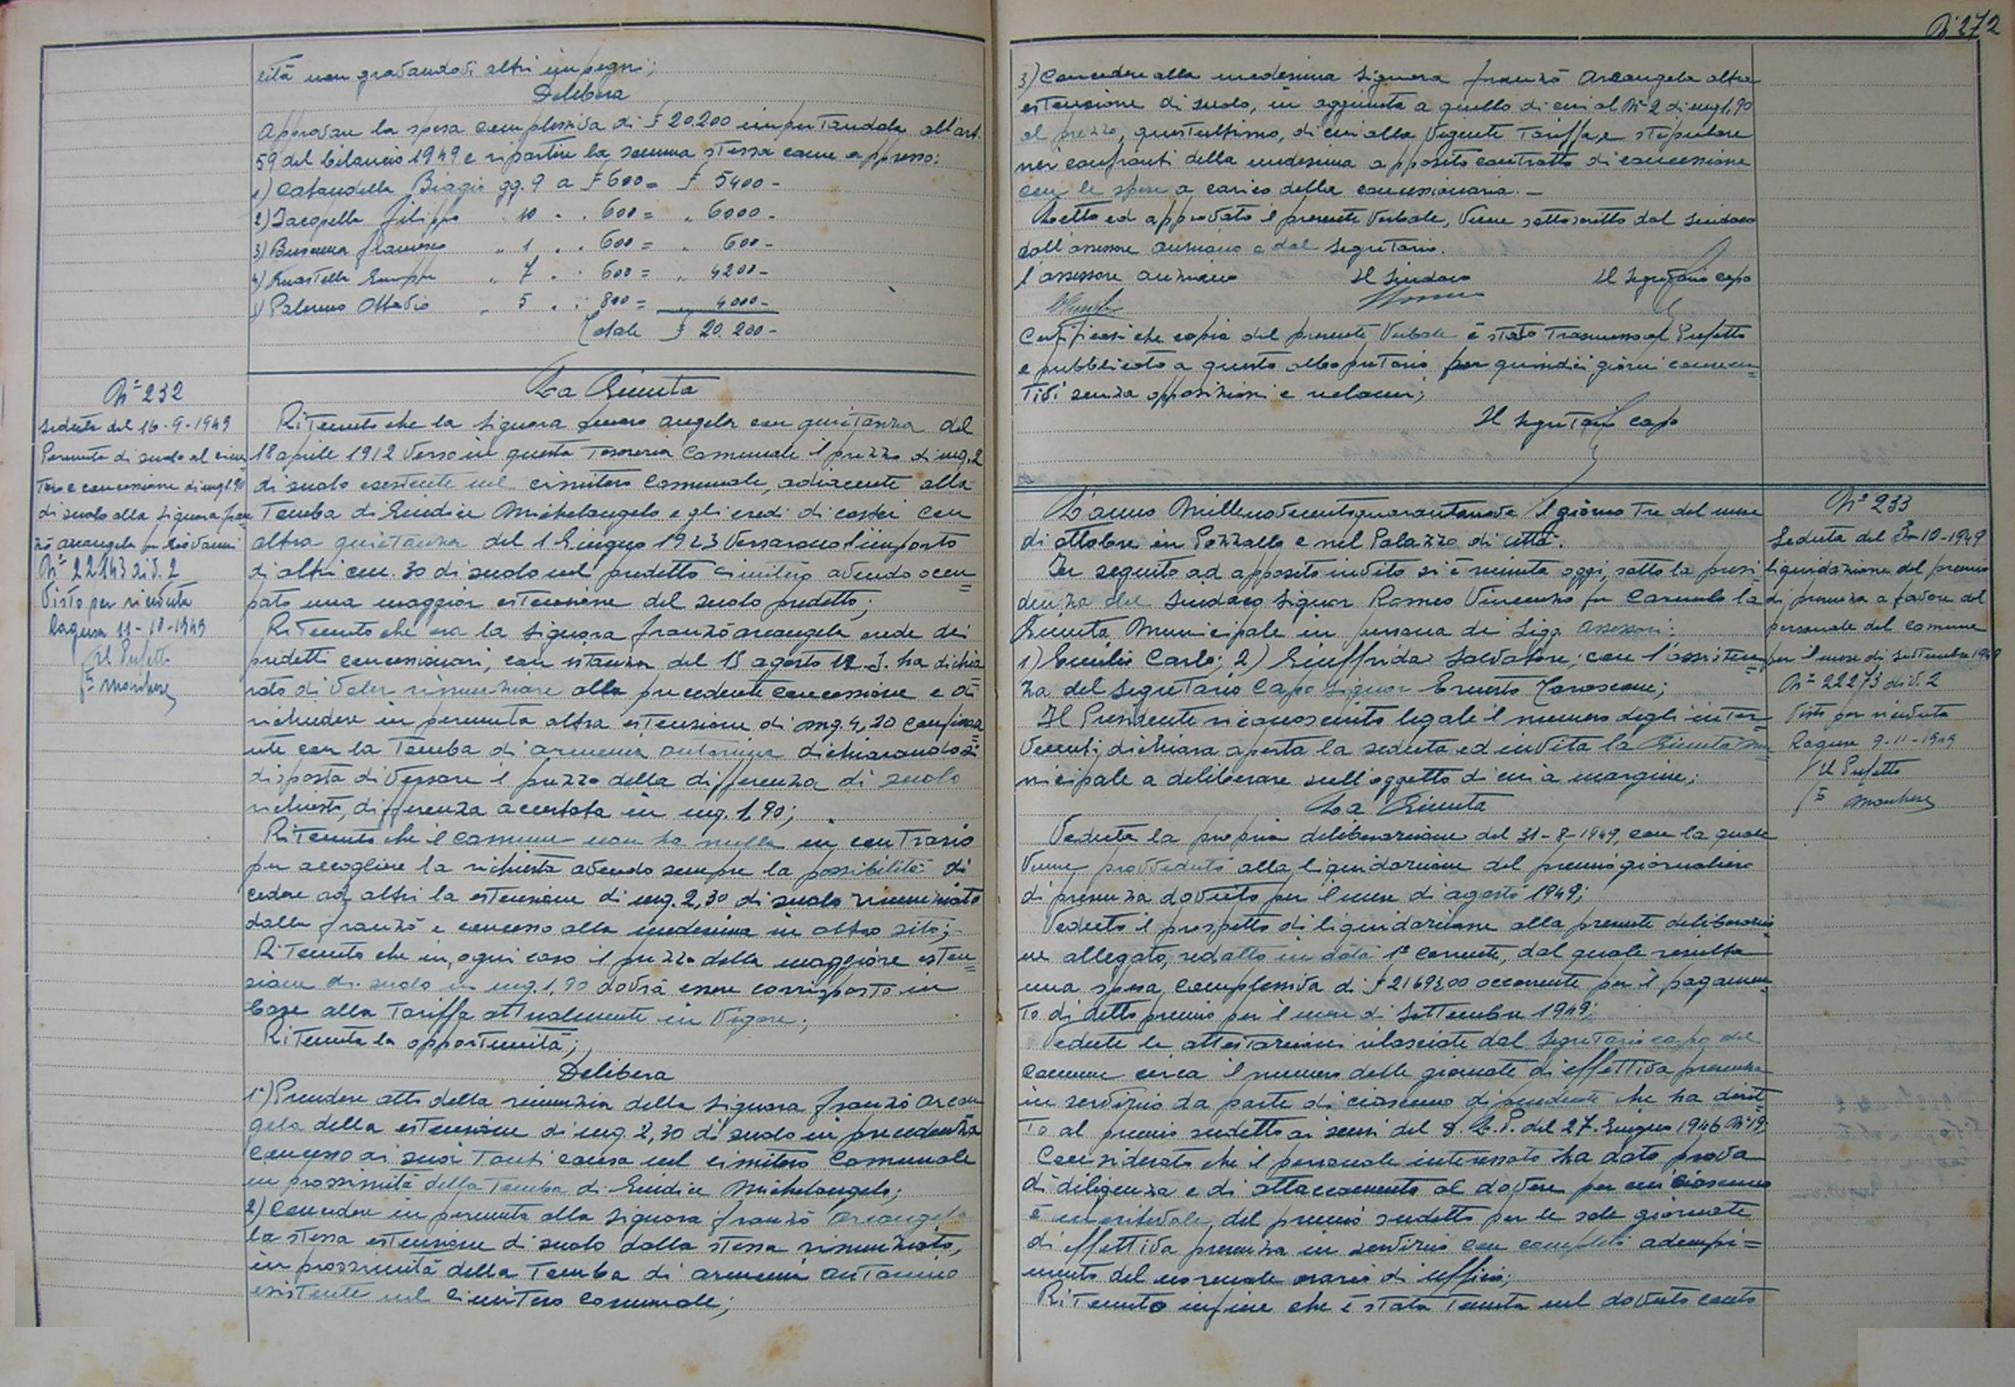 N° 272
lità non gravandovi altri impegni;
Delibera
Approvare la spesa complessiva di £ 20.200 imputandola all'art.
59 del bilancio 1949 e ripartire la somma stessa come appresso:
1) Cataudella Biagio gg. 9 a £ 600= £ 5400-
2) Iacopella Filippo " 10 " " 600= " 6000-
3) Buscema Francesco " 1 " " 600= " 600-
4) " 7 " " 600= " 4200-
5) Palermo Ottavio " 5 " " 800= 4000-
Totale £ 20.200-
N° 232
Seduta del 16-9-1949
Permuta di suolo al cimi
tero e concessione di mq 1.90
di suolo alla Signora Fran
zò Arcangela fu Giovanni
N° 22143 div. 2
Visto per ricevuta
Ragusa 11-10-1949
Il Prefetto
La Giunta
Ritenuto che la Signora Angela con quietanza del
18 aprile 1912 versò in questa Tesoreria Comunale il prezzo di mq. 2
di suolo esistente nel cimitero Comunale, adiacente alla
Tomba di Giudice Michelangelo e gli eredi di costei con
altra quietanza del 1 Giugno 1923 versarono l'importo
di altri cm. 30 di suolo nel predetto cimitero avendo occu=
pato una maggior estensione del suolo predetto;
Ritenuto che ora la Signora Franzò Arcangela erede dei
predetti concessionari, con istanza del 15 agosto u. s. ha dichia
rato di voler rinunziare alla precedente concessione e di
richiedere in permuta altra estensione di mq. 4,20 confina=
nte con la Tomba di Armenia Antonino dichiarandosi
disposta di versare il prezzo della differenza di suolo
richiesto, differenza accertata in mq. 1,90;
Ritenuto che il Comune non ha nulla in contrario
per accogliere la richiesta avendo sempre la possibilità di
cedere ad altri la estensione di mq. 2,30 di suolo rinunziato
dalla Franzò e concesso alla medesima in altro sito;
Ritenuto che in ogni caso il prezzo della maggiore esten=
sione di suolo in mq. 1,90 dovrà essere corrisposto in
base alla Tariffa attualmente in vigore;
Ritenuta la opportunità;
Delibera
1°) Prendere atto della rinunzia della Signora Franzò Arcan
gela della estensione di mq. 2,30 di suolo in precedenza
concesso ai suoi danti causa nel cimitero Comunale
in prossimità della Tomba di Giudice Michelangelo;
2) Concedere in permuta alla Signora Franzò Arcangela
la stessa estensione di suolo dalla stessa rinunziato,
in prossimità della Tomba di Armenia Antonino
esistente nel Cimitero Comunale;
3) Concedere alla medesima Signora Franzò Arcangela altra
estensione di suolo, in aggiunta a quello di cui al N° 2 di mq 1,90
al prezzo, quest'ultimo, di cui alla vigente Tariffa, e stipulare
nei confronti della medesima apposito contratto di concessione
con le spese a carico della concessionaria. -
Letto ed approvato il presente verbale, viene sottoscritto dal Sindaco
dall'assessore anziano e dal Segretario.
L'assessore anziano Il Sindaco Il Segretario Capo
Certificasi che copia del presente Verbale è stato trasmesso al Prefetto
e pubblicato a questo albo pretorio per quindici giorni consecu=
tivi senza opposizioni e reclami;
Il Segretario Capo
L'anno Millenovecentoquarantanove il giorno Tre del mese
di ottobre in Pozzallo e nel Palazzo di città.
In seguito ad apposito invito si è riunita oggi, sotto la presi
denza del Sindaco Signor Romeo Vincenzo fu Carmelo la
Giunta Municipale in persona dei Sigg. Assessori:
1) Emilio Carlo; 2) Giuffrida Salvatore; con l'assisten
za del Segretario Capo Signor Ernesto
Il Presidente riconosciuto legale il numero degli inter=
venuti, dichiara aperta la seduta ed invita la Giunta Mu
nicipale a deliberare sull'oggetto di cui a margine;
La Giunta
Veduta la propria deliberazione del 31-8-1949, con la quale
venne provveduto alla liquidazione del premio giornaliero
di presenza dovuto per il mese di agosto 1949;
Veduto il prospetto di liquidazione alla presente deliberazio
ne allegato, redatto in data 1° corrente, dal quale risulta
una spesa complessiva di £ 2169300 occorrente per il pagamen
to di detto premio per il mese di Settembre 1949;
Vedute le attestazioni rilasciate dal Segretario capo del
Comune circa il numero delle giornate di effettiva presenza
in servizio da parte di ciascuno dipendente che ha dirit
to al premio suddetto ai sensi del D. L. P. del 27 Giugno 1946 N° 19;
Considerato che il personale interessato ha dato prova
di diligenza e di attaccamento al dovere per cui ciascuno
è meritevole, del premio suddetto per le sole giornate
di effettiva presenza in servizio con completo adempi=
mento del normale orario di ufficio;
Ritenuto infine che è stata tenuta nel dovuto conto
N° 233
Seduta del 3-10-1949
Liquidazione del premio
di presenza a favore del
personale del Comune
per il mese di Settembre 1949
N° 22273 div. 2
Visto per ricevuta
Ragusa 9-11-1949
Il Prefetto